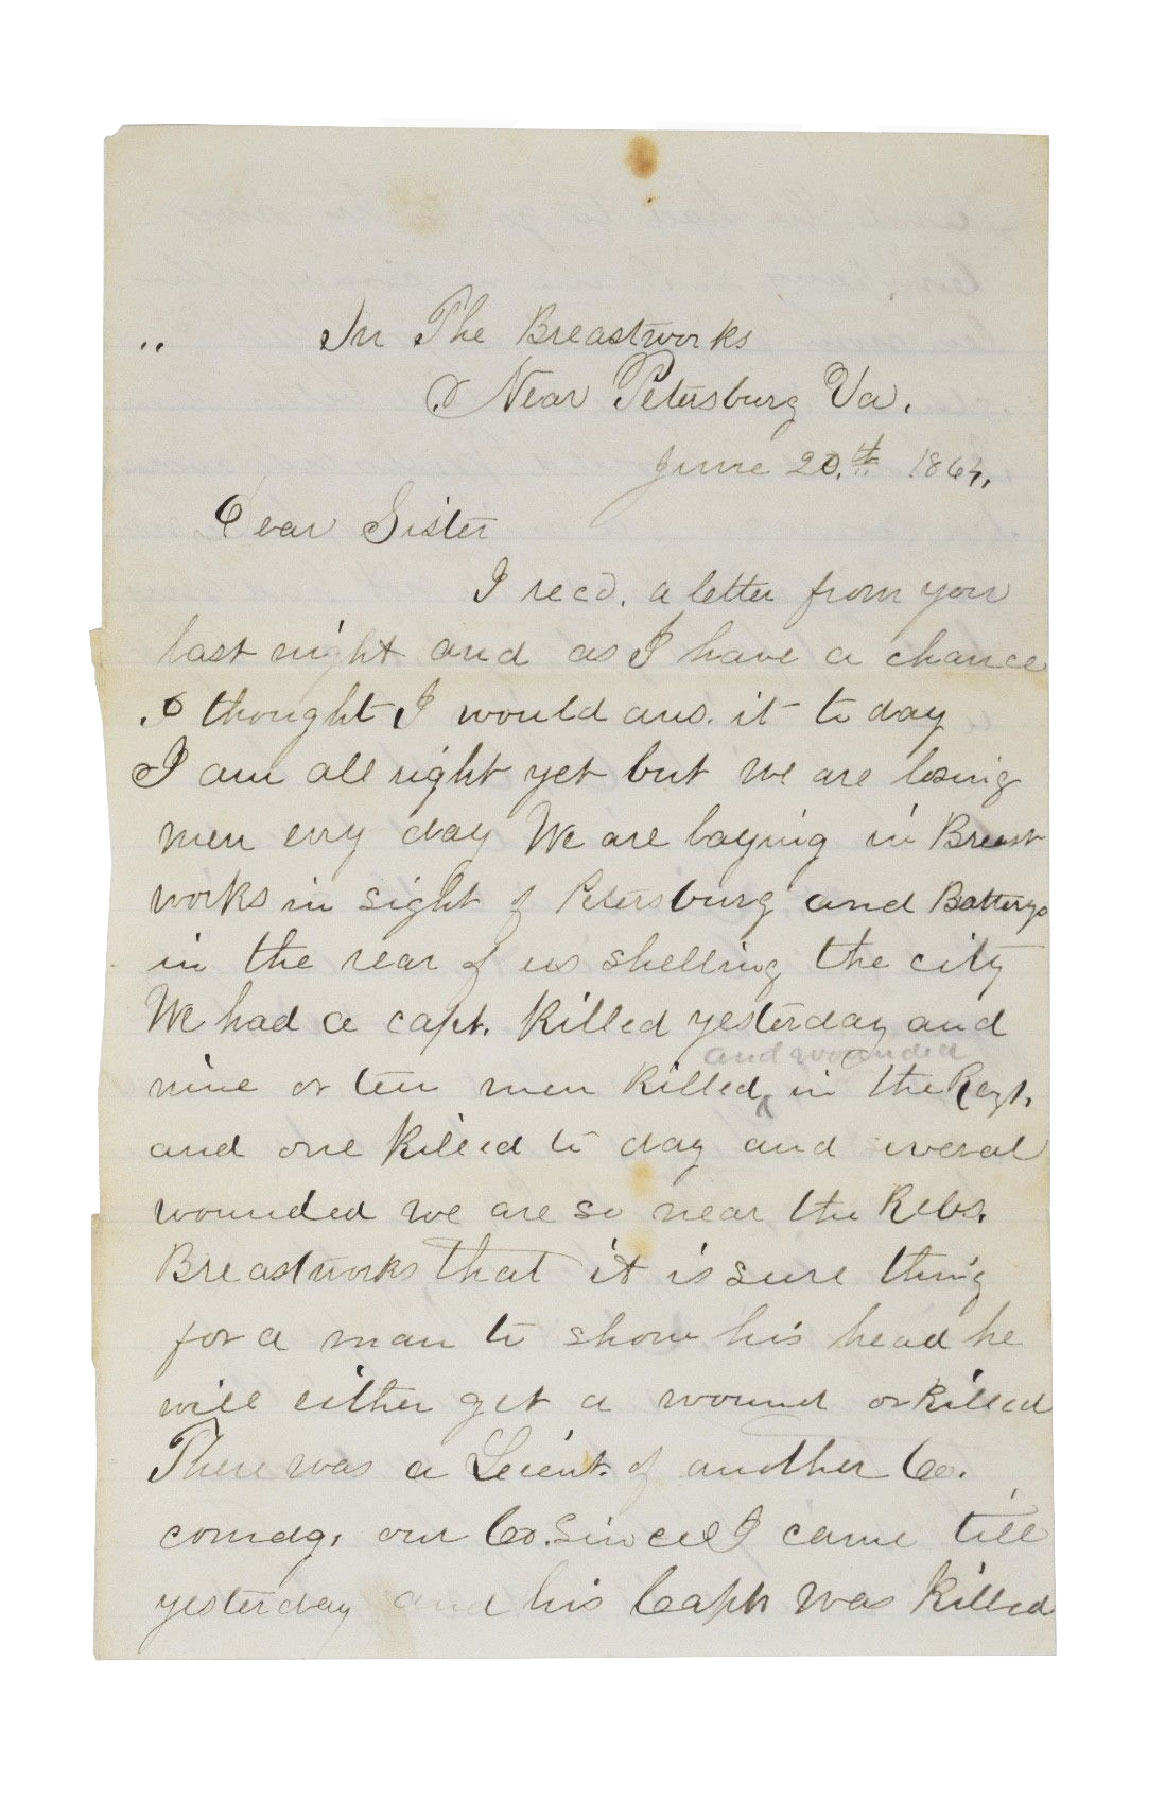 In The Breastworks
Near Petersburg Va.
June 20.th 1864.
Dear Sister
I recd. a letter from you
last night and as I have a chance
I thought I would ans. it to day
I am all right yet but we are losing
men evry day We are laying in Breast
works in sight of Petersburg and Batterys
in the rear of us shelling the city
We had a capt. killed yesterday and
and wounded
nine or ten men killed in the Regt.
and one killed to day and several
wounded we are so near the Rebs.
Breastworks that it is sure thing
for a man to show his head he
will either get a wound or killed
There was a Leieut. of another Co.
comdg. our Co. since I came till
yesterday and his Capt was killed